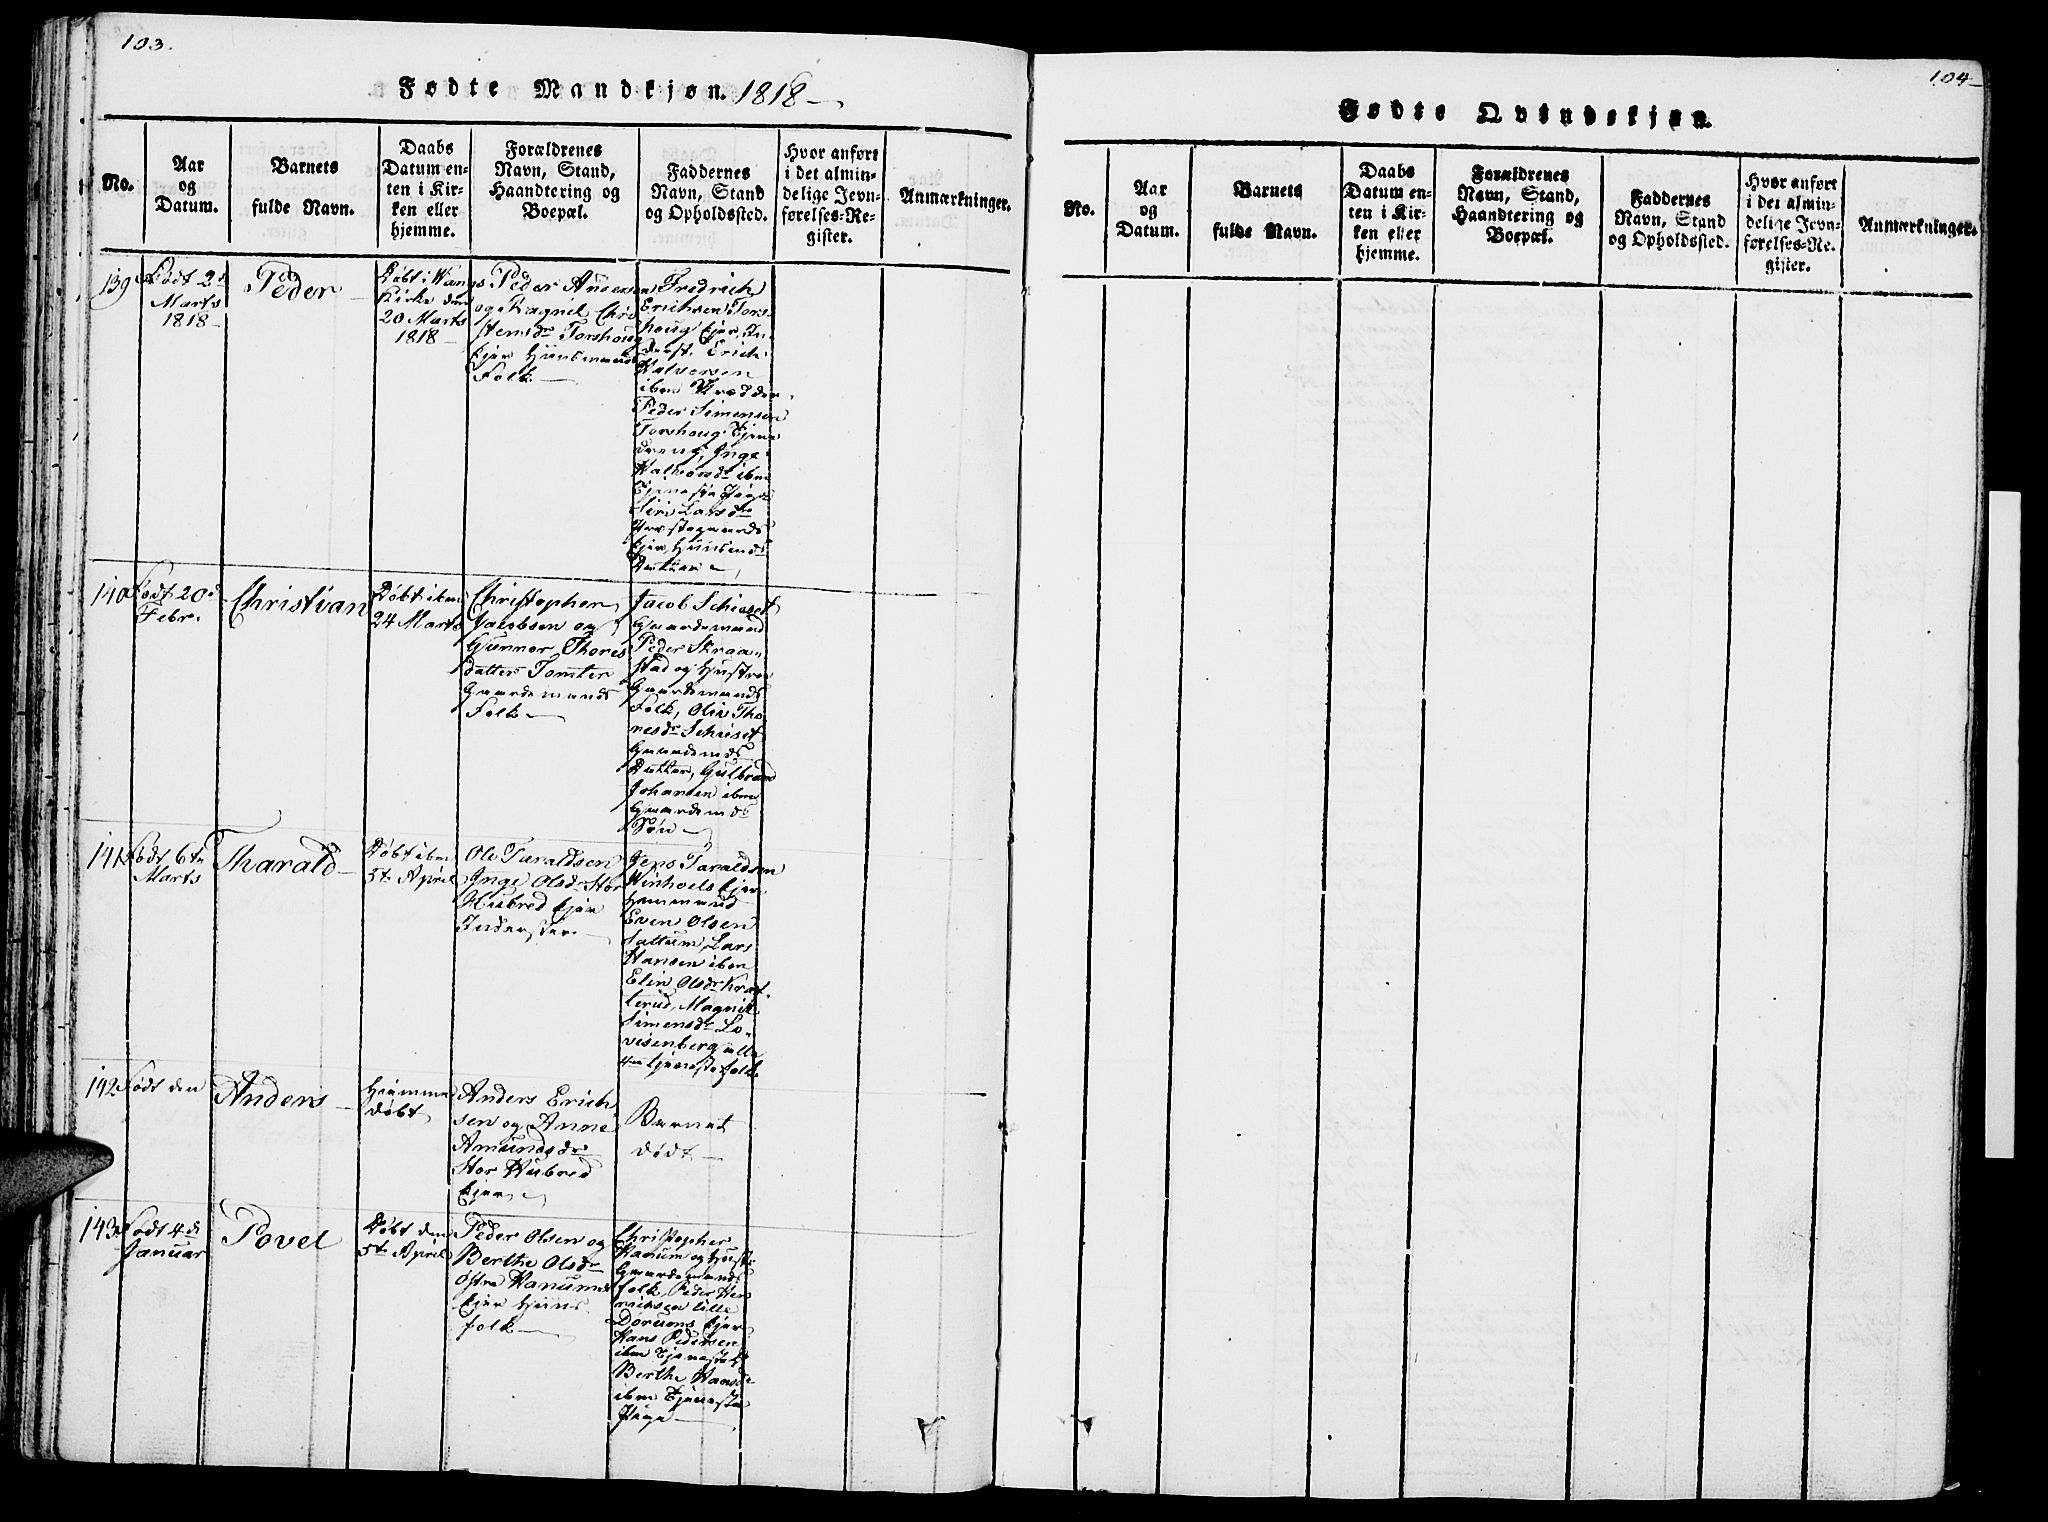 103.
Fødte Mandkjøn. 1818 –
No.
Aar
og
Datum.
Barnets
fulde Navn.
Daabs
Datum en-
ten i Kir-
ken eller
hjemme.
Forældrenes
Navn, Stand,
Haandtering og
Boepæl.
Faddernes
Navn, Stand
og Opholdssted.
Hvor anført
i det almin-
delige Jevn-
førelses-Re-
gister.
Anmærkninger.
139
Født 2d
Marts
1818 –
Peder
Døbt i Wangs
Kirke den
20 Marts
1818 –
Peder Andersen
og Ragnil Chri
stensdr Torshoug
Ejer Huusmands
Folk –
Fredrich
Erichsen Tors-
houg Ejer In-
derst, Erich
Halvorsen
ibm Skrædder,
Peder Simensen
Torshoug Tjene
dreng, Inge
Halvorsdr ibm
Tjeneste Pige
Siri Larsdtr
Præstegaards
Ejer Huusmds
Datter –
140
Født 20d
Febr.
Christian
Døbt ibm
24 Marts
Christopher
Jakobsen og
Gunnor Thores
datter Tomter
Gaardemands
Folk –
Jacob Schieset
Gaardemand
Peder Skraa-
stad og Hustru
Gaardemands
Folk, Oliv Tho
resdr Schieset
Gaardemds
Datter, Gulbrand
Johansen ibm
Gaardemds
Søn –
141
Født 6te
Marts
Tharald –
Døbt ibm
5te April
Ole Taraldsen
Inge Olsdr Stor
Hubred Ejer
Inderster –
Jens Taraldsen
Winhoels Ejer
Huusmand
Even Olsen
Sattum, Lars
Hansen ibm
Elin Olsdr Krat-
terud, Magnil
Simensdr Lo-
visenberg alle
tjenestefolk
142
Født den
Anders –
Hiemme
døbt
Anders Erich
sen og Anne
Amundsdr
Stor Hubred
Ejer –
Barnet
dødt –
143
Født 4d
Januar
Povel
Døbt den
5te April
Peder Olsen og
Berthe Olsdr
Østre Hanum
Ejer Huus
folk –
Christopher
Hanum og Hustr
Gaardemands
folk, Peder Hen
richsen Lille
Dorums Ejer
Hans Pedersen
ibm Tjenestek
Berthe Hansdr
ibm Tjeneste
Pige –
104 –
Fødte Qvindekjøn.
No.
Aar
og
Datum.
Barnets
fulde Navn.
Daabs
Datum en-
ten i Kir-
ken eller
hjemme.
Forældrenes
Navn, Stand,
Haandtering og
Boepæl.
Faddernes
Navn, Stand
og Opholdssted.
Hvor anført
i det almin-
delige Jevn-
førelses-Re-
gister.
Anmærkninger.